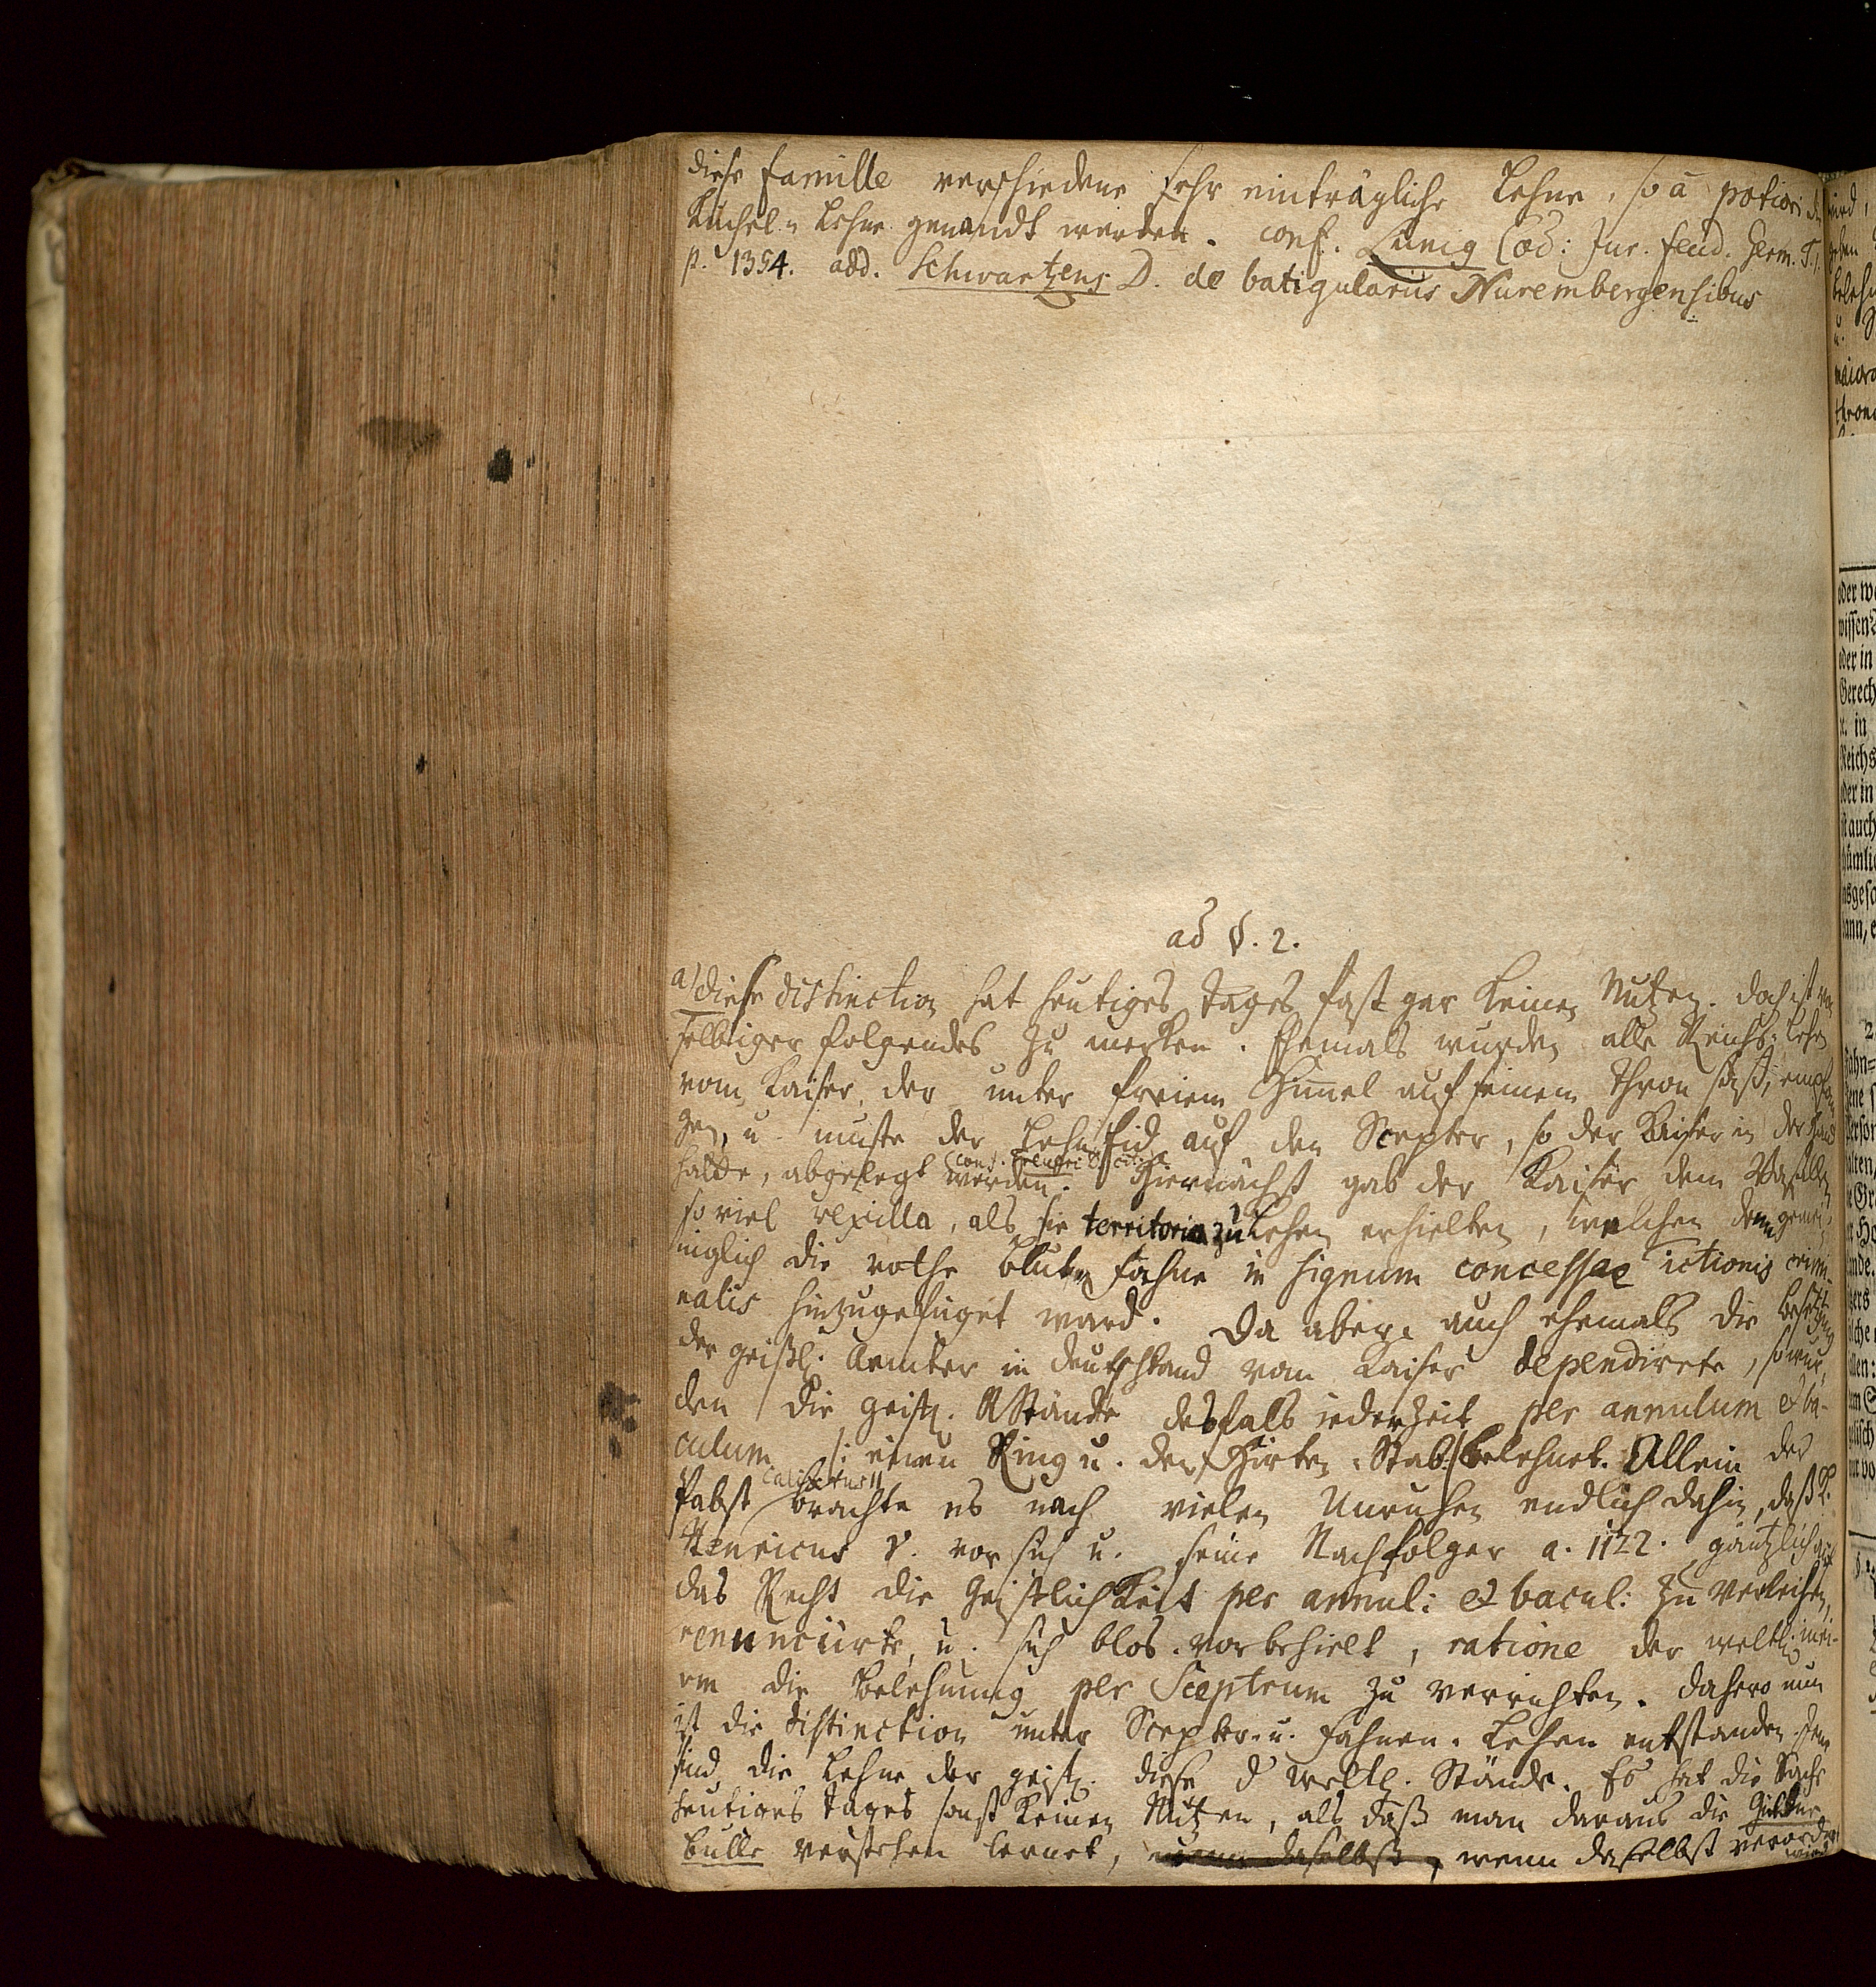 diese famille verschiedene sehr einträgliche Lehne, so à potiori die
Kuchel-Lehne genandt werden. conf. Lünig Cod: Jur. feud. Germ. T. 1.
p. 1354. add. Schwartzens D. de batigulariis Nurembergensibus
ad §. 2.
a) diese distinction hat heutiges Tages fast gar keinen Nutzen. doch ist von
selbiger folgendes zu merken. Ehemals wurden alle Reichs-Lehen
vom Kaiser, der unter freiem Himel auf seinem Thron saß, empfan
gen, u. muste der Lehns Eid auf den Scepter, so der Kaiser in der Hand
hatte, abgelegt werden. Hiernächst gab der Kaiser dem Vasallen
so viel vexilla, als sie territoria zu Lehen erhielten, welchen denn gemei-
niglich die rothe Blut-Fahne in signum concessae ictionis crimi-
nalis hinzugefüget ward. Da aber auch ehemals die Besetzung
der geistl. Aemter in Deutschland vom Kaiser dependirete, so wur-
den die geistl. RStände desfals iederzeit per annulum et ba-
culum /: einen Ring u. den Hirten-Stab :/ belehnet. Allein der
Calixtus II
Pabst brachte es nach vielen Unruhen endlich dahin, daß K.
Henricus V. vor sich u. seine Nachfolger a. 1122. gäntzlich auf
das Recht die Geistlichkeit per annul: et bacul: zu verleihen,
renuncirte, u. sich blos vorbehielt, ratione der weltl.
die Belehnung per Sceptrum zu verrichten. Dahero nun
ist die distinction unter Scepter- u. Fahnen-Lehen entstanden. Jene
sind die Lehne der geistl. diese d weltl. Stände. Es hat die Sache
heutiges Tages sonst keinen Nutzen, als daß man daraus die Güldne
Bulle verstehen lernet, wenn daselbst verordnet
wird